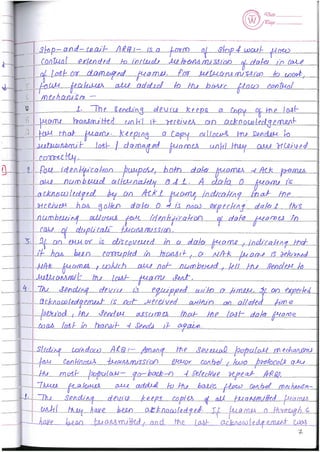 Date
Page
Stop-and-wait ARQ:- is a form of stop & wait flow
control extended to include retransmission of data in case
of lost or damaged frames. For retransmission to work,
four features are added to the basic flow control
mechanism -
1. The sending device keeps a copy of the last
frame transmitted until it receives an acknowledgement
for that frame. Keeping a copy allows the sender to
retransmit lost / damaged frames until they are received
correctly.
2. For identification purpose, both data frames & ACK frames
are numbered alternately 0 & 1. A data 0 frame is
acknowledged by an ACK 1 frame indicating that the
receiver has gotten data 0 & is now expecting data 1. This
numbering allows for identification of data frames in
case of duplicate transmission.
3. If an error is discovered in a data frame, indicating that
it has been corrupted in transit, a NAK frame is returned
NAK frames, which are not numbered, tell the sender to
retransmit the last frame sent.
4. The sending device is equipped with a timer. If an expected
acknowledgement is not received within an alloted time
period, the sender assumes that the last data frame
was lost in transit & sends it again.
Sliding window ARQ:- Among the several popular mechanisms
for continuous transmission error control, two protocols are
the most popular - go-back-n & selective repeat ARQ.
Three features are added to the basic flow control mechanism-
1. The sending device keeps copies of all transmitted frames
until they have been acknowledged. If frames 0 through 6
have been transmitted, and the last acknowledgement was